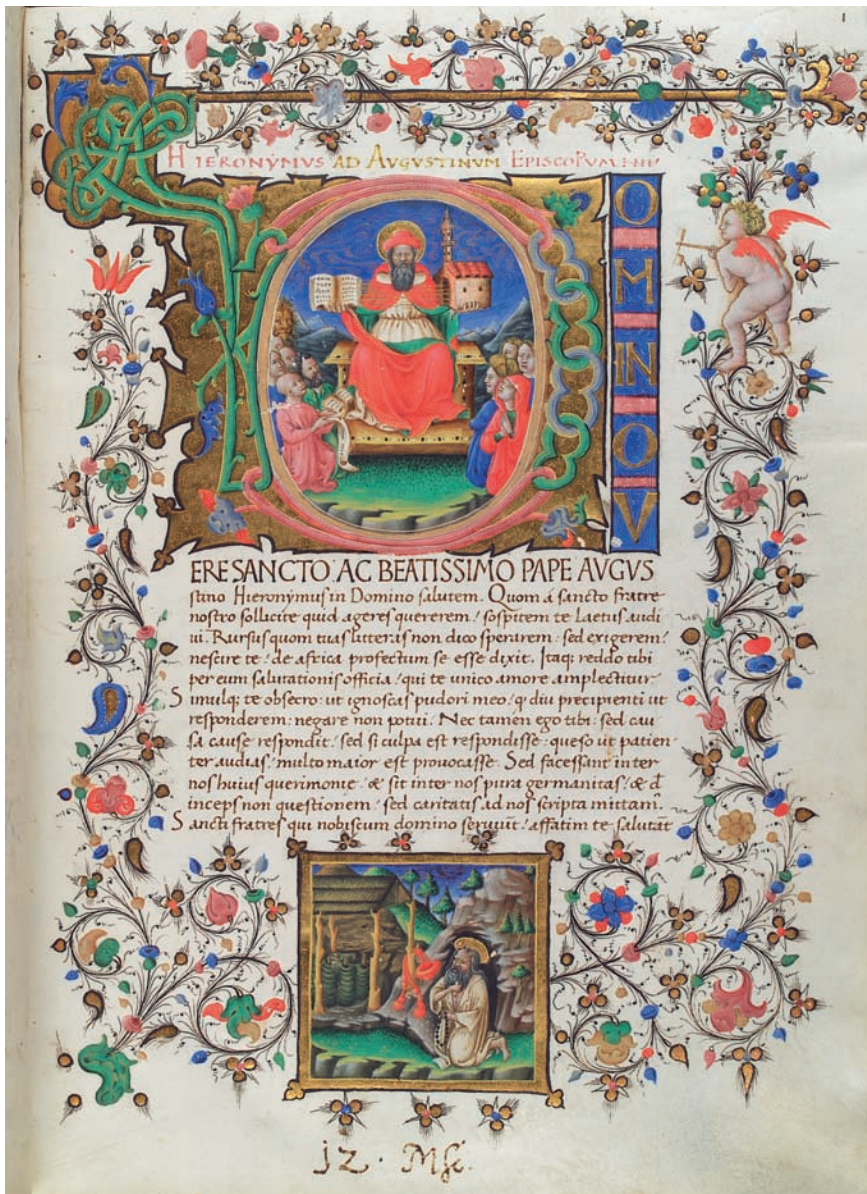 1
HIERONYMVS AD AVGVSTINVM EPISCOPVM
D
O
M
IN
O
V
ERE SANCTO AC BEATISSIMO PAPE AVGVS
stino Hieronymus in Domino salutem. Quom a sancto fratre
nostro sollicite quid ageres quererem / sospitem te Laetus audi
ui. Rursus quom tuas litteras non dico sperarem: sed exigerem /
nescire te: de africa profectum se esse dixit. Itaq; reddo tibi
per eum salutationis officia / qui te unico amore amplectitur.
Simulq; te obsecro: ut ignoscas pudori meo / q diu precipienti ut
responderem: negare non potui. Nec tamen ego tibi: sed cau
sa cause respondit / sed si culpa est respondisse: queso ut patien
ter audias / multo maior est prouocasse. Sed facessant inter
nos huius querimonie / & sit inter nos pura germanitas / & d
inceps non questionem / sed caritatis ad nos scripta mittam.
Sancti fratres qui nobiscum domino seruiūt / affatim te salutāt